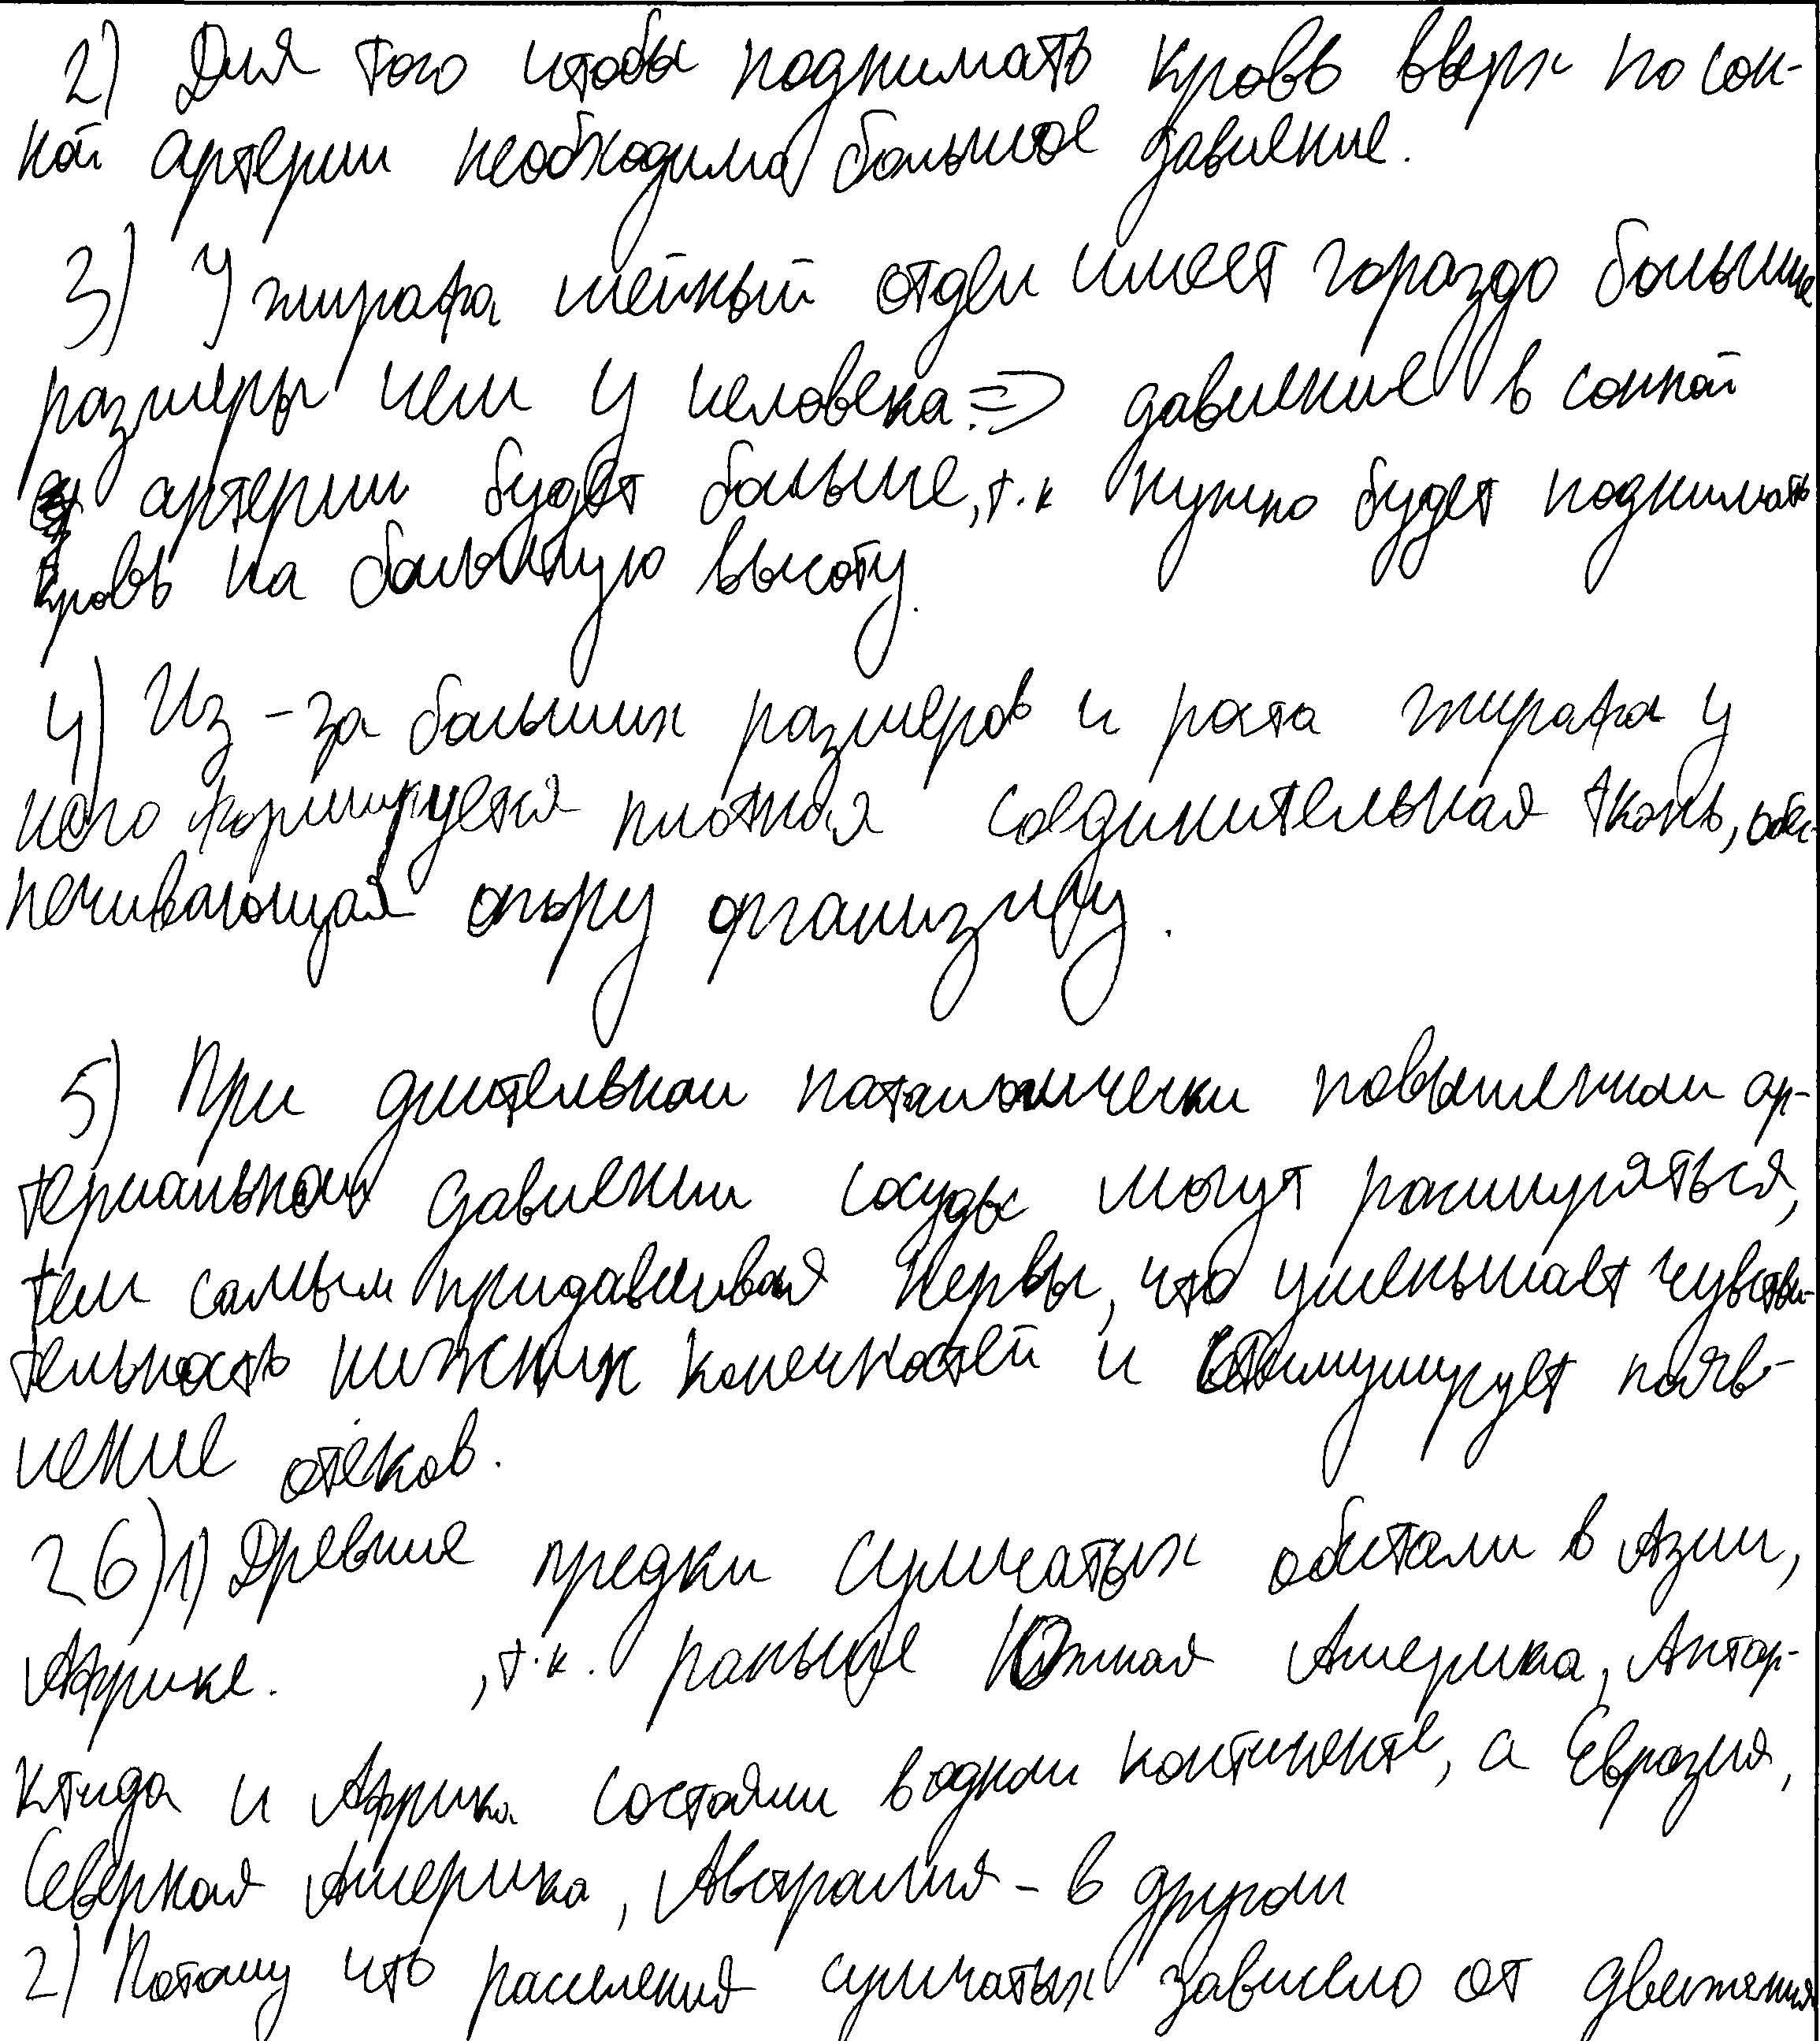 2) Для того чтобы поднимать кровь вверх по сон-
ной артерии необходимо большое давление.
3) У жирафа шейный отдел имеет гораздо большие
размеры чем у человека => давление в сонной
артерии будет больше, т.к нужно будет поднимать
кровь на большую высоту.
4) Из-за больших размеров и роста жирафа у
него формируется плотная соединительная ткань, обес-
печивающая опору организму.
5) При длительном патологически повышенном ар-
териальном давлении сосуды могут расширяться,
тем самым придавливая нервы, что уменьшает чувстви-
тельность нижних конечностей и стимулирует появ-
ление отёков.
26) 1) Древние предки сумчатых обитали в Азии,
Африке. , т.к. раньше Южная Америка, Антар-
ктида и Африка состояли в одном континенте, а Евразия,
Северная Америка, Австралия - в другом
2) Потому что расселения сумчатых зависело от движения